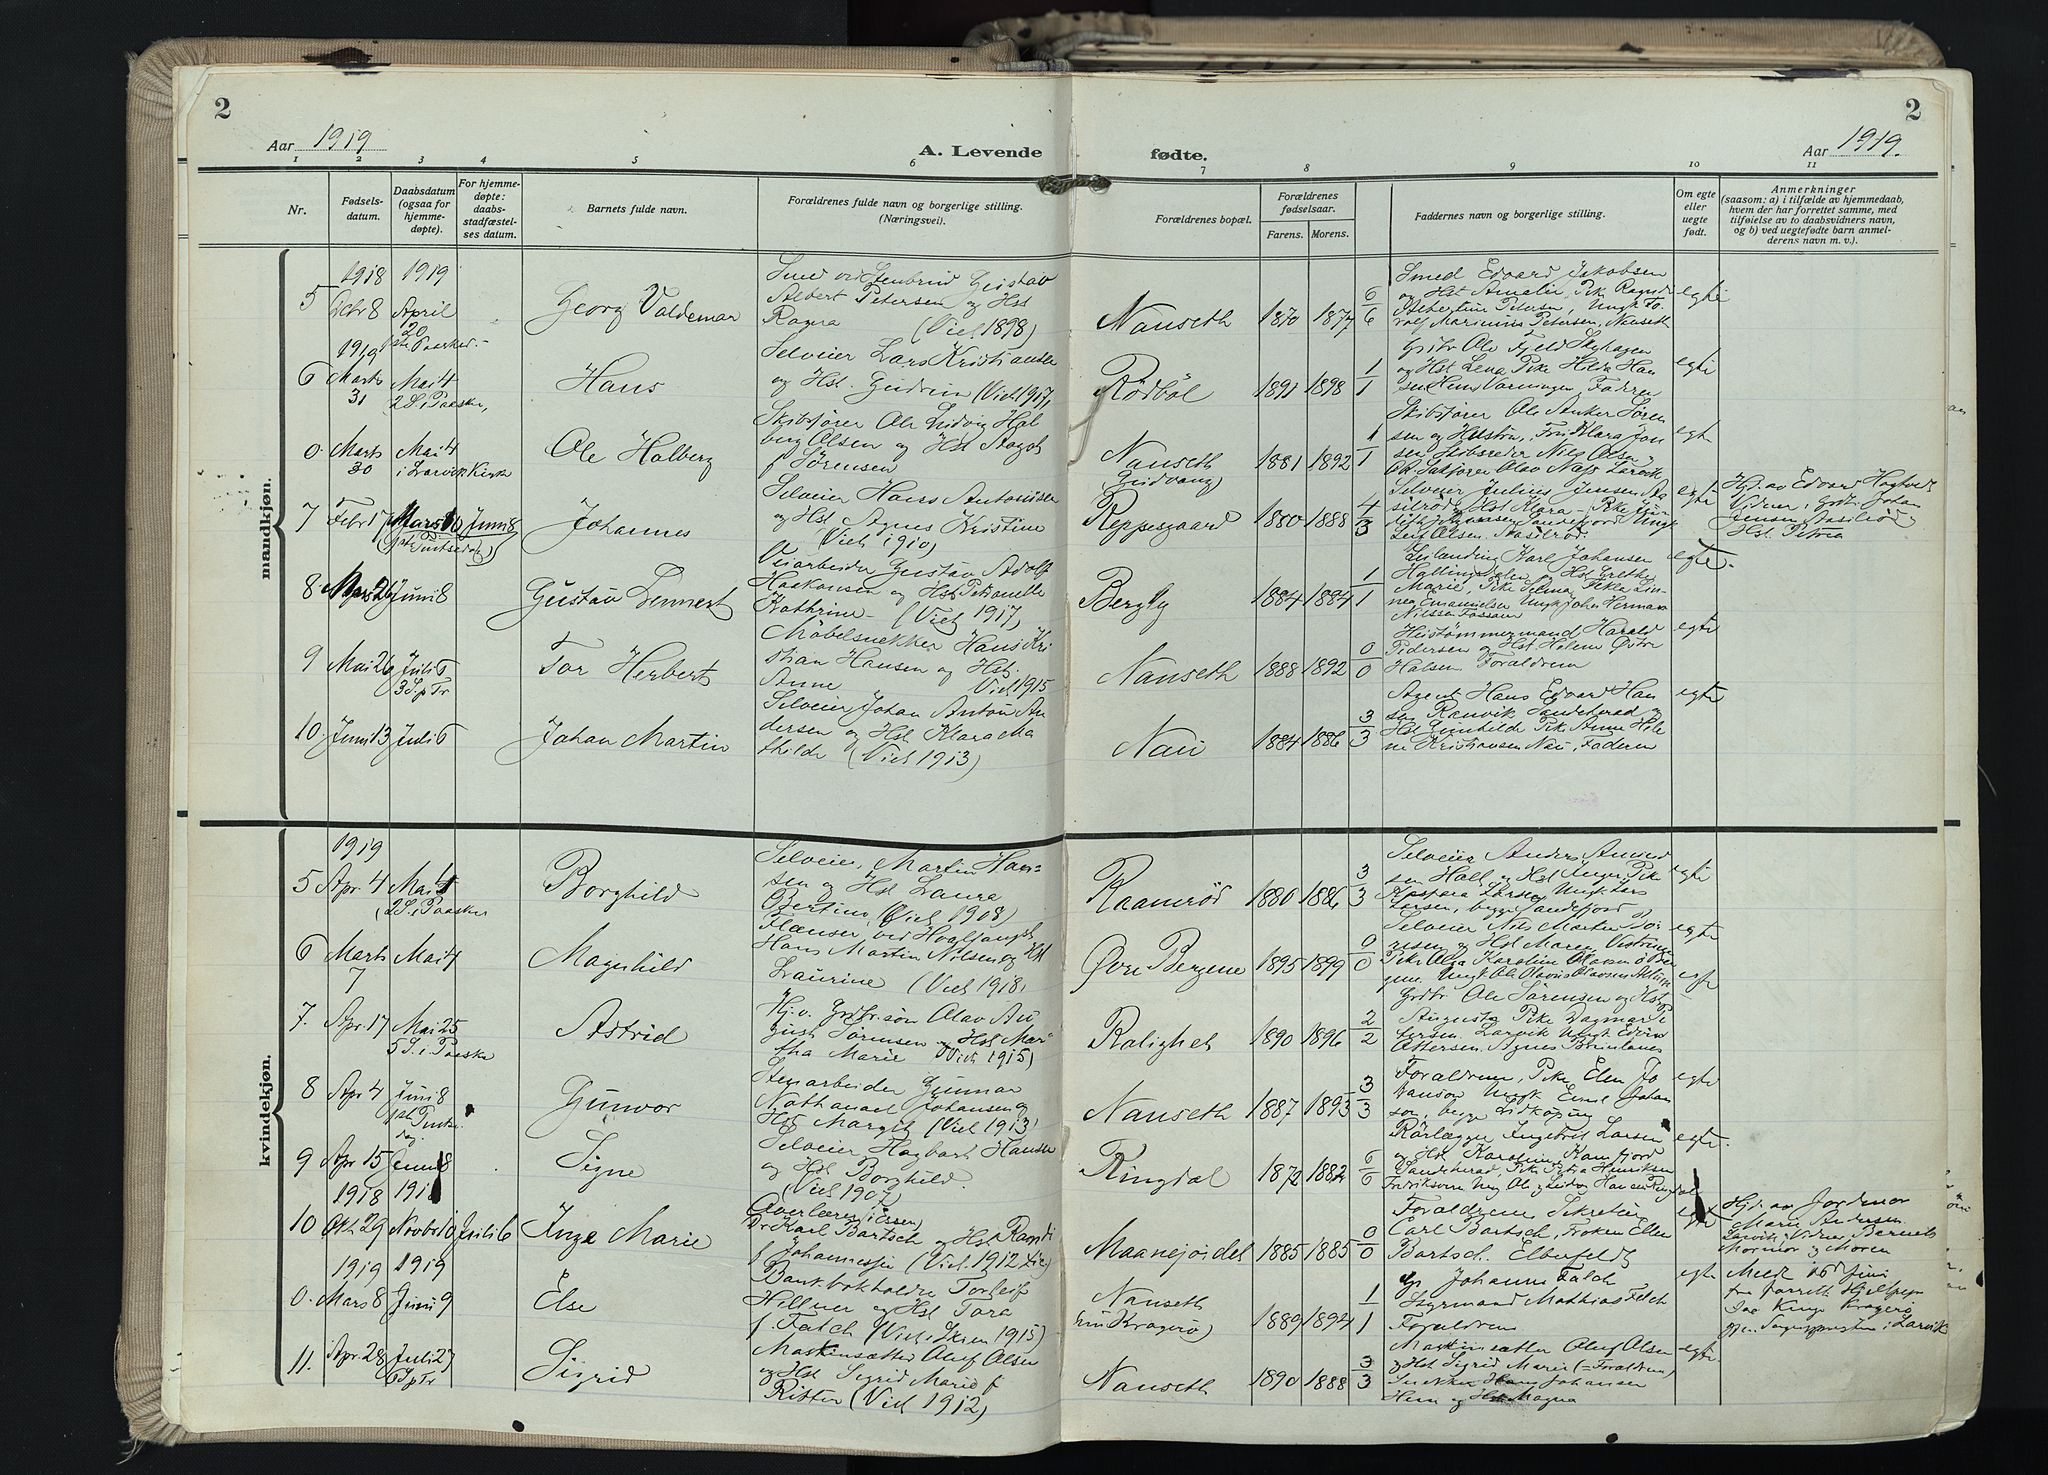 2
2
Aar 1919
A. Levende
fødte.
Aar 1919.
1 2 3 4 5 6 7 8 9 10 11
Nr.
Fødsels-
datum.
Daabsdatum
(ogsaa for
hjemme-
døpte).
For hjemme-
døpte:
daabs-
stadfæstel-
ses datum.
Barnets fulde navn.
Forældrenes fulde navn og borgerlige stilling.
(Næringsvei).
Forældrenes bopæl.
Forældrenes
fødselsaar.
Farens. Morens.
Faddernes navn og borgerlige stilling.
Om egte
eller
uegte
født.
Anmerkninger
(saasom: a) i tilfælde av hjemmedaab,
hvem der har forrettet samme, med
tilføielse av to daabsvidners navn,
og b) ved uegtefødte barn anmel-
derens navn m. v.).
mandkjøn.
1918 1919
5 Dcbr 8 April
20
Georg Valdemar
Smed ved Stenbrud Gustav
Albert Petersen og Hst
Ragna (Viet 1898)
Nanseth 1870 1877 6/6
Smed Edvard Jakobsen
og Hst Amalie, Pike Ragna
Albertine Petersen, Ungk To
ralf Marinius Petersen, Nanseth
egte
1919
6 Marts 31 Mai 4
2 S. i Paasken,
Hans
Selveier Lars Kristiansen
og Hst. Gudrun (Viet 1917,
Rödböl 1891 1898 1/1
Grdbr Ole Fjeld Skyhagen
og Hst Lena Pike Hilda Han
sen Hem Faderen
egte
0. Marts 30 Mai 4
i Larvik Kirke
Ole Halberg
Skibsfører Ole Ludvig Hal
berg Olsen og Hst Aagot
f Sørensen
Nanseth
1881 1892 1/1
Skibsfører Ole Anker Søren
sen og Hustru, Fru Klara Jon
sen Skibsreder Nils Olsen
Olav Næss Larvik
egte
7 Febr 17 Juni 8
Johannes
Selveier Hans Antonisen
og Hst Agnes Kristine
(Viet 1910)
Reppesgaard 1880 1888 4/3
Selveier Julius Jensen Aa
silrød og Hst Klara - Pike
Sandefjord Ungk
Leif Olsen Aasilrød
egte
Hjd. av Edvard Hogtvedt
Vidner, Grdbr. Johan
Jensen Aasilrød og
Hst Petrea
8. Mars 26 Juni 8
Gustav Lennert
Veiarbeider Gustav Adolf
Haakonsen og Hst Petronelle
Kathrine - (Viet 1917)
Bergly 1884 1884 1/1
Leilending Karl Johansen
Hallingdalen og Hst Grethe
Marie, Pike Selma Tekla Lin
nea Emanuelsen Ungk Johs Herman
Nilsen Fossane
egte.
9 Mai 26 Juli 6
3 S. p Tr
Tor Herbert
Möbelsnekker Hans Kri
stian Hansen og Hst
Anne Viet 1915
Nanseth 1888 1892 0/0
Hustömmermand Harald
Pedersen og Hst Helene Østre
Halsen Forældrene
egte
10. Juni 13 Juli 6
Johan Martin
Selveier Johan Anton An
dersen og Hst Klara Ma
thilde (Viet 1913)
Nau 1884 1886 3/3
Agent Hans Edvard Han
sen Ranvik Sandeherad og
Hst Gunhilde Pike Anna Hele
ne Kristiansen Nau, Faderen
egte
kvindekjøn.
1919
5 Apr 4 Mai 4
(2 S. i Paasken
Borghild
Selveier, Martin Han=
sen og Hst Laura
Bertine, (Viet 1908)
Raamrød 1880 1886 3/3
Selveier Anders Amund
sen Hall og Hst Inger Pike
Kaspara Larsen Ungk Lars
Larsen, begge Sandefjord
egte
6 Marts 7 Mai 4
Magnhild
Flenser ved Hvalfangst
Hans Martin Nilsen og Hst
Laurine (Viet 1918,
Øvre Bergene 1895 1899 0/0
Selveier Nils Martin Tor
risen og Hst Maren
Pike Olga Karoline Olavsen Ø Ber
gene Ungk Ole Olavus Olavsen
egte
7. Apr. 17 Mai 25
5 S. i Paaske
Astrid
Hj. v. Grdbr. søn Olav Au
gust Sørensen og Hst Mar
tha Marie (Viet 1915)
Rolighet 1890 1896 2/2
Grdbr Ole Sørensen og Hst
Augusta Pike Dagmar P
tersen Larvik Ungk Edvin
Attersen Agnes
egte
8 Apr 4 Juni 8
1ste Pintse
dag.
Gunvor
Stenarbeider Gunnar
Nathanael Johansen og
Hst Margit (Viet 1913)
Nanseth 1887 1893 3/3
Forældrene, Pike Elen Jo
hanson Ungk Emil Johan
son, begge Lidköping
egte
9 Apr 15 Juni 8
Signe
Selveier Hagbart Hansen
og Hst Borghild.
(Viet 1907,
Ringdal 1872 1882 6/6
Rörlægger Ingebret Larsen
og Hst Karoline Kamfjord
Sandeherad, Pike Petra Henriksen
Fredriksværn Ung Ole Ludvig Hansen Ringdal
egte.
1918 1918
10 Okt. 29 Novbr 10 Juli 6
Inge Marie
Overlærer (i Essen)
Dr Karl Bartsch og Hst Randi
f Johannessen (Viet 1912 Lie)
Maanejordet 1885 1885 0/0
Forældrene Sekretær
Carl Bartsch, Frøken Ellen
Bartsch. Elberfeld
egte
Hjd. av Jordmor
Marie Andersen
Larvik. Vidner Barnets
Mormor og Moren
1919 1919
0. Mars 8 Juni 9
Else
Bankbokholder Torleif
Hillner og Hst Tora
f. Falch (Viet i Skien 1915)
Nanseth
(nu Kragerø) 1889 1894 1/1
Johanne Falch
Styrmand Mathias Falch
Forældrene
egte
Meldt 16d Juni
fra forrett Hjelpepr
Kragerø
Larvik
11. Apr. 28 Juli 27
6 S p Tr
Sigrid
Maskinsætter Oluf Olsen
og Hst Sigrid Marie f
Risten (Viet 1912)
Nanseth 1890 1888 3/3
Maskinsætter Oluf Olsen
og Hst Sigrid Marie (= Forældrene)
Snekker Hans Johansen
Hem og Hst Magna
egte